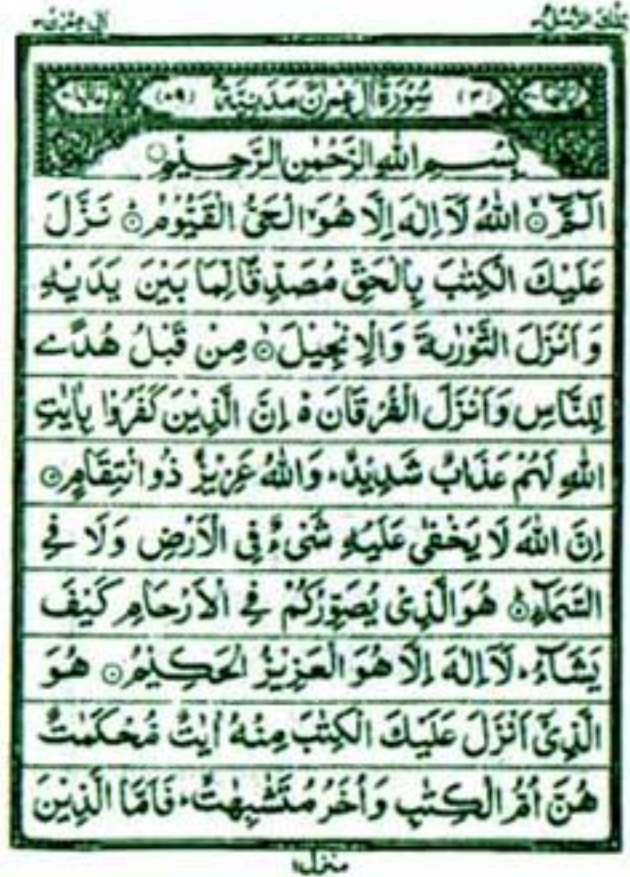 تلك الرسل ٣ ال عمرٰن ٣
اٰیاتها (٣) سُوْرَةُ اٰلِ عِمْرٰنَ مَدَنِیَّةٌ (٨٩)
بِسْمِ اللهِ الرَّحْمٰنِ الرَّحِیْمِ
الٓمّٓ ۙ اللهُ لَاۤ اِلٰهَ اِلَّا هُوَ ۙ الْحَیُّ الْقَیُّوْمُ ؕ نَزَّلَ
عَلَیْكَ الْكِتٰبَ بِالْحَقِّ مُصَدِّقًا لِّمَا بَیْنَ یَدَیْهِ
وَ اَنْزَلَ التَّوْرٰىةَ وَالْاِنْجِیْلَ ۙ مِنْ قَبْلُ هُدًی
لِّلنَّاسِ وَاَنْزَلَ الْفُرْقَانَ ؕ اِنَّ الَّذِیْنَ كَفَرُوْا بِاٰیٰتِ
اللهِ لَهُمْ عَذَابٌ شَدِیْدٌ ؕ وَاللهُ عَزِیْزٌ ذُو انْتِقَامٍ ۝
اِنَّ اللهَ لَا یَخْفٰی عَلَیْهِ شَیْءٌ فِی الْاَرْضِ وَلَا فِی
السَّمَآءِ ؕ هُوَالَّذِیْ یُصَوِّرُكُمْ فِی الْاَرْحَامِ كَیْفَ
یَشَآءُ ؕ لَاۤ اِلٰهَ اِلَّا هُوَ الْعَزِیْزُ الْحَكِیْمُ ۝ هُوَ
الَّذِیْۤ اَنْزَلَ عَلَیْكَ الْكِتٰبَ مِنْهُ اٰیٰتٌ مُّحْكَمٰتٌ
هُنَّ اُمُّ الْكِتٰبِ وَاُخَرُ مُتَشٰبِهٰتٌ ؕ فَاَمَّا الَّذِیْنَ
منزل ١